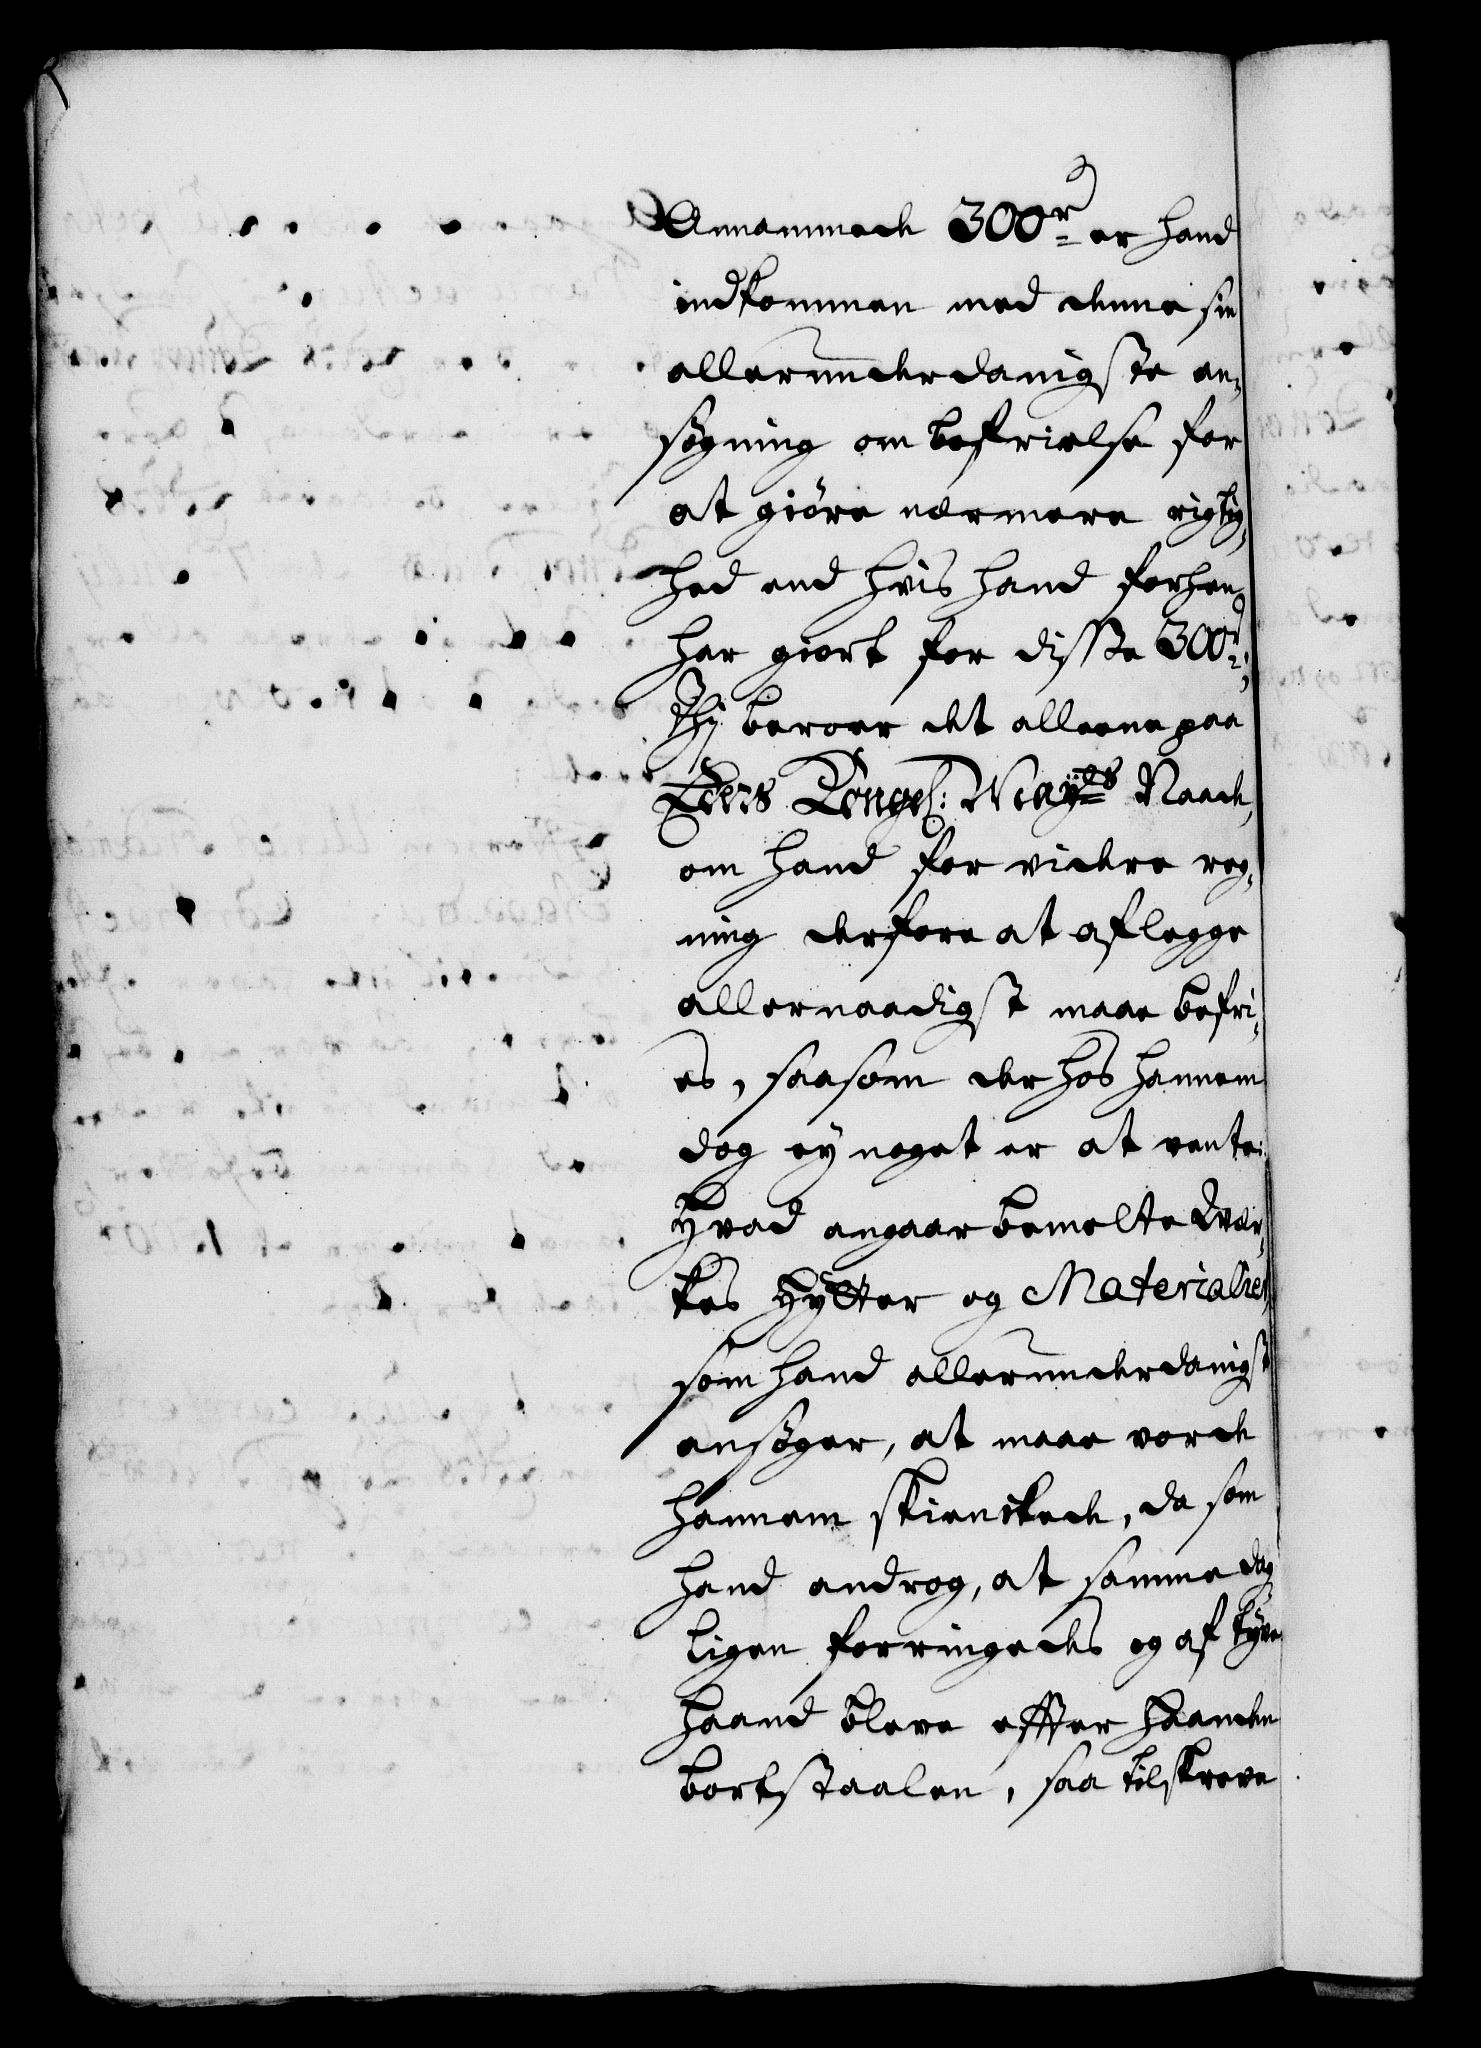 Annammede 300 rd er hand
indkommen med denne sin
allerunderdanigste an¬
søgning om befrielse for
at giöre nærmere rigtig¬
hed end hvis hand forhen
har giort for disse 300 rd;
Thj beroer det alleene paa
Eders Kongel: Mayts Naade,
om hand for videre reg¬
ning derfore at aflegge
allernaadigst maae befri¬
es, saasom der hos hannem
dog ey noget er at vente:
Hvad angaar bemelte Qvær¬
kes Hytter og Materialier,
som hand allerunderdanigst
ansøger, at maae vorde
hannem skienckede, da som
hand androg, at samme dag
ligen forringedes og af tyve
haand bleve effter haanden
bortstaalen, saa tilskreve